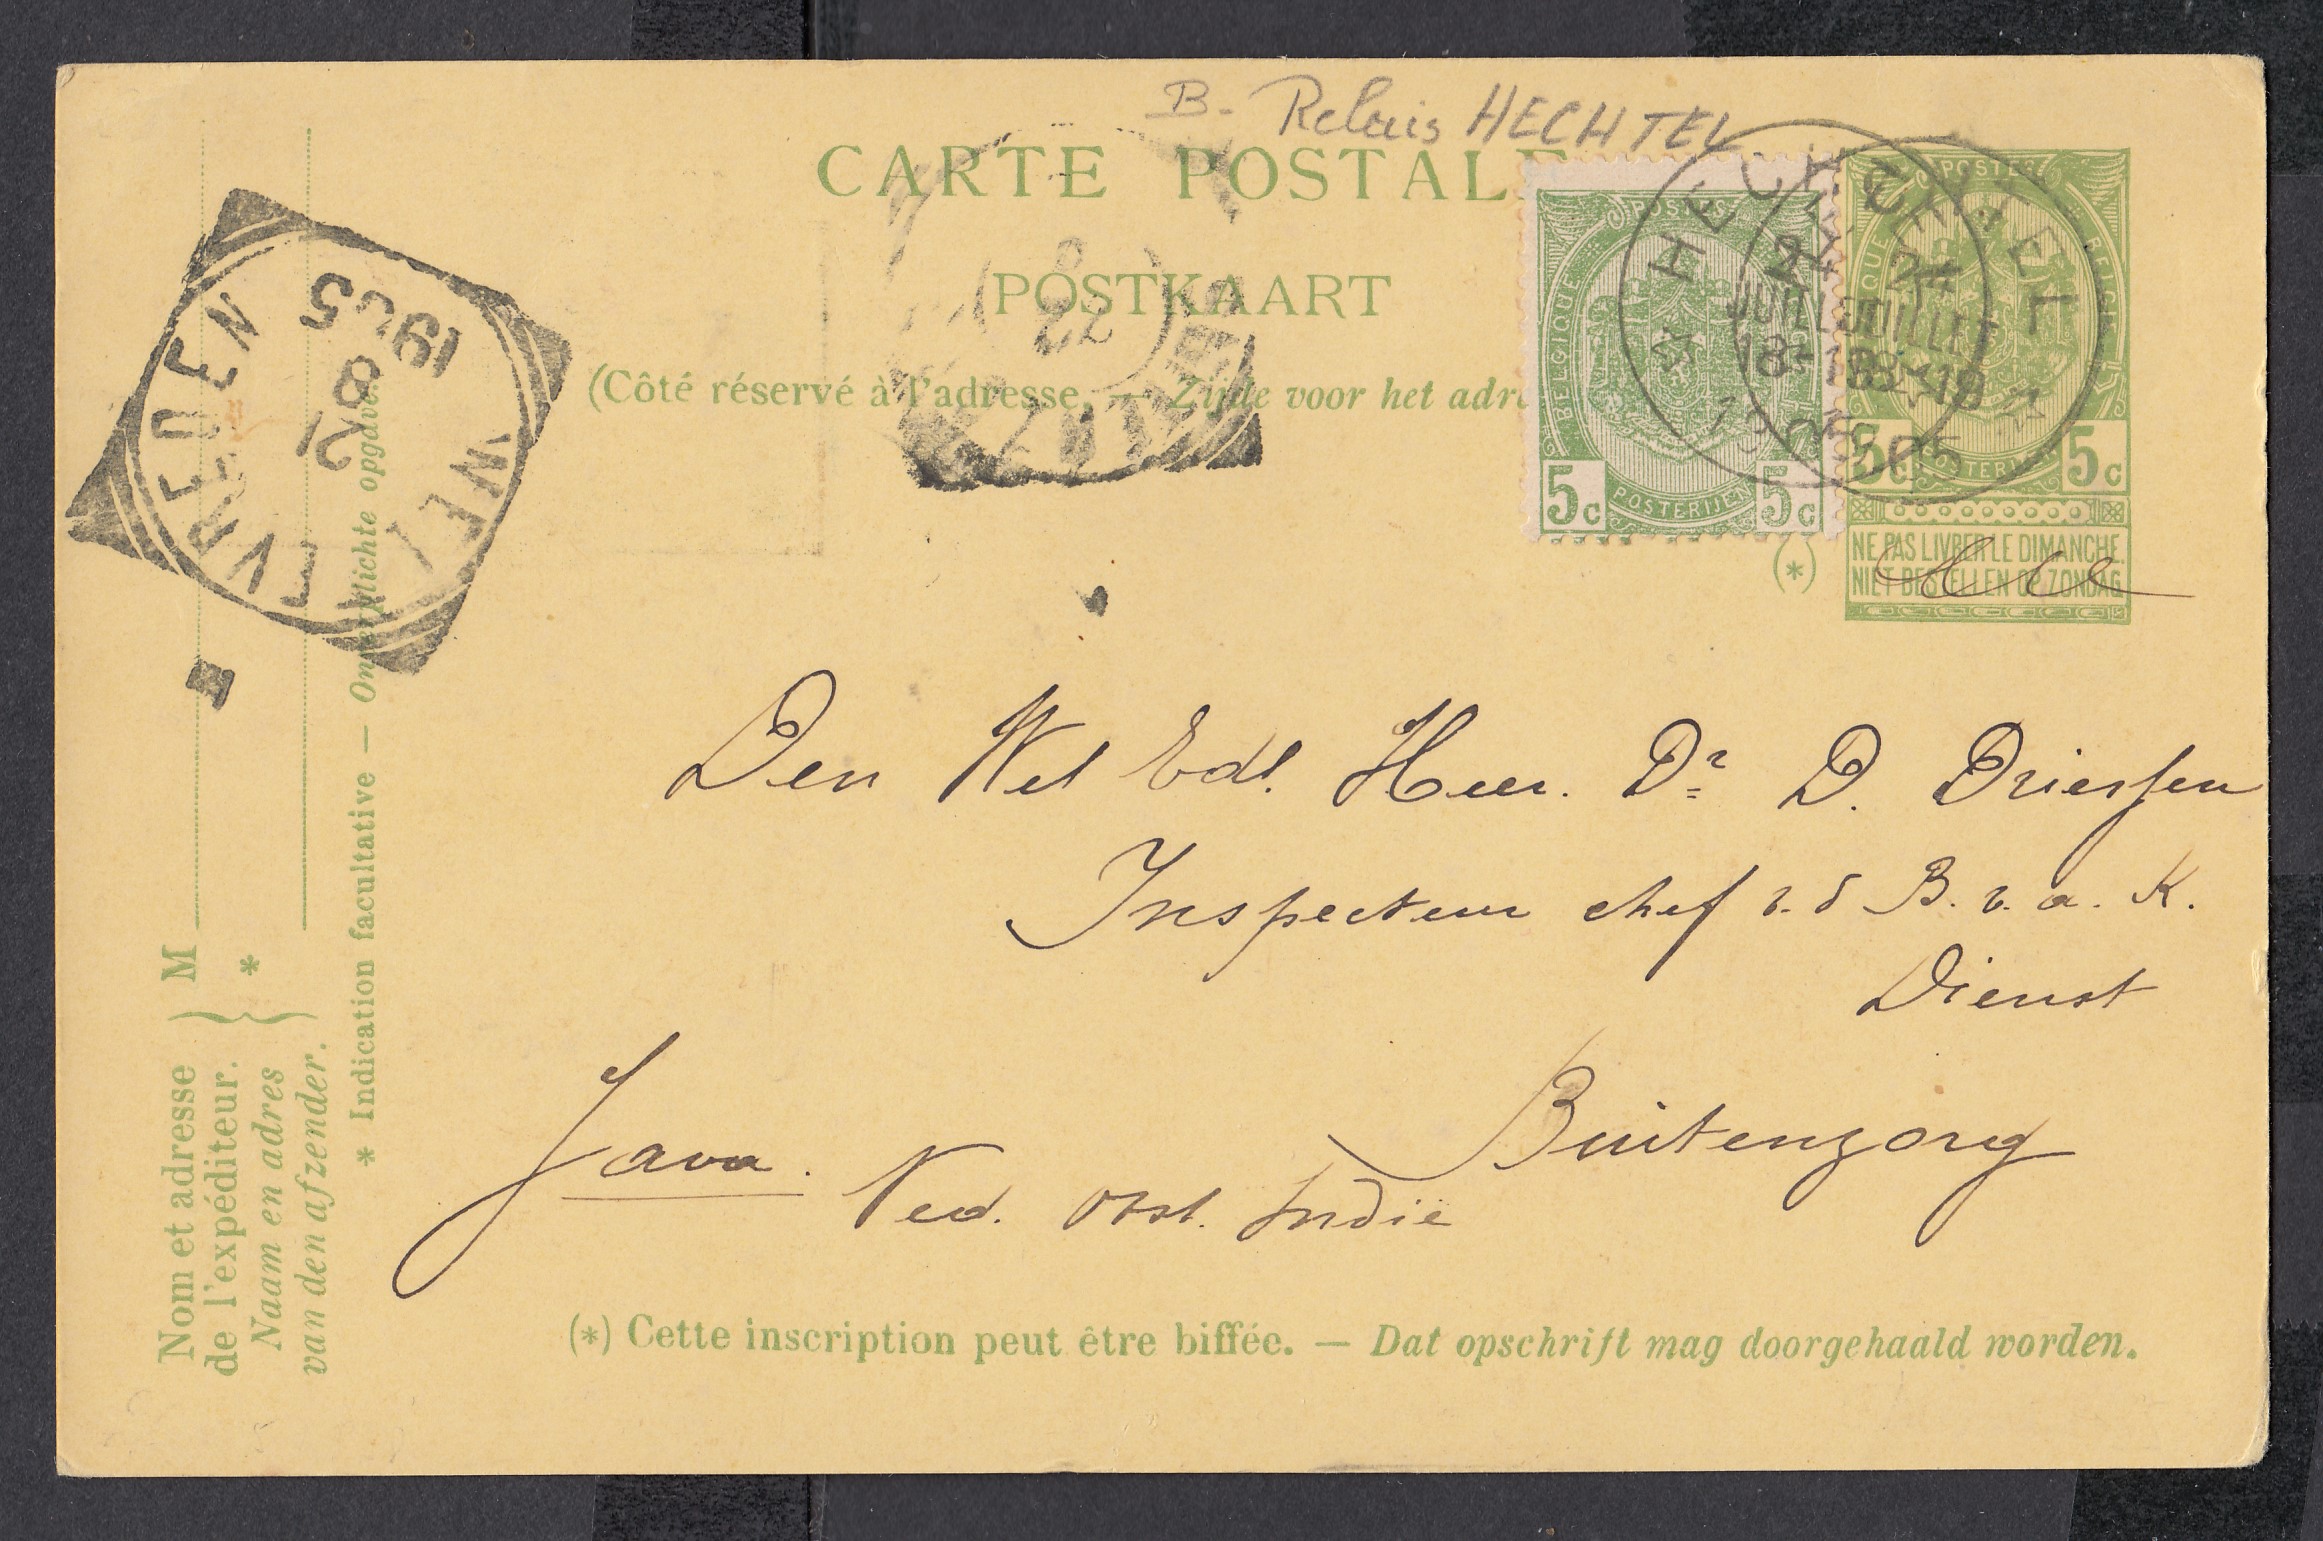 B- Relais HECHTEL
CARTE POSTALE
POSTKAART
(Côté réservé à l'adresse. — Zijde voor het adre
POSTES
BELGIQUE
5c 5c
POSTERIJEN
POSTES
BELGIË
5c 5c
POSTERIJEN
NE PAS LIVRER LE DIMANCHE.
NIET BESTELLEN OP ZONDAG.
(*)
HECHTEL
24
JUILLET
18-19
1905
HECHTEL
24
JUILLET
18-19
1905
WELTEVREDEN
21
8
1905
22
8
Den Wel Edl. Heer. Dr D. Driessen
Inspecteur chef v. d B. v. a. K.
Dienst
Buitenzorg
Java. Ned. Oost. Indië
(*) Cette inscription peut être biffée. — Dat opschrift mag doorgehaald worden.
Nom et adresse
de l'expéditeur. } M
Naam en adres
van den afzender. } *
* Indication facultative — Onverplichte opgave.